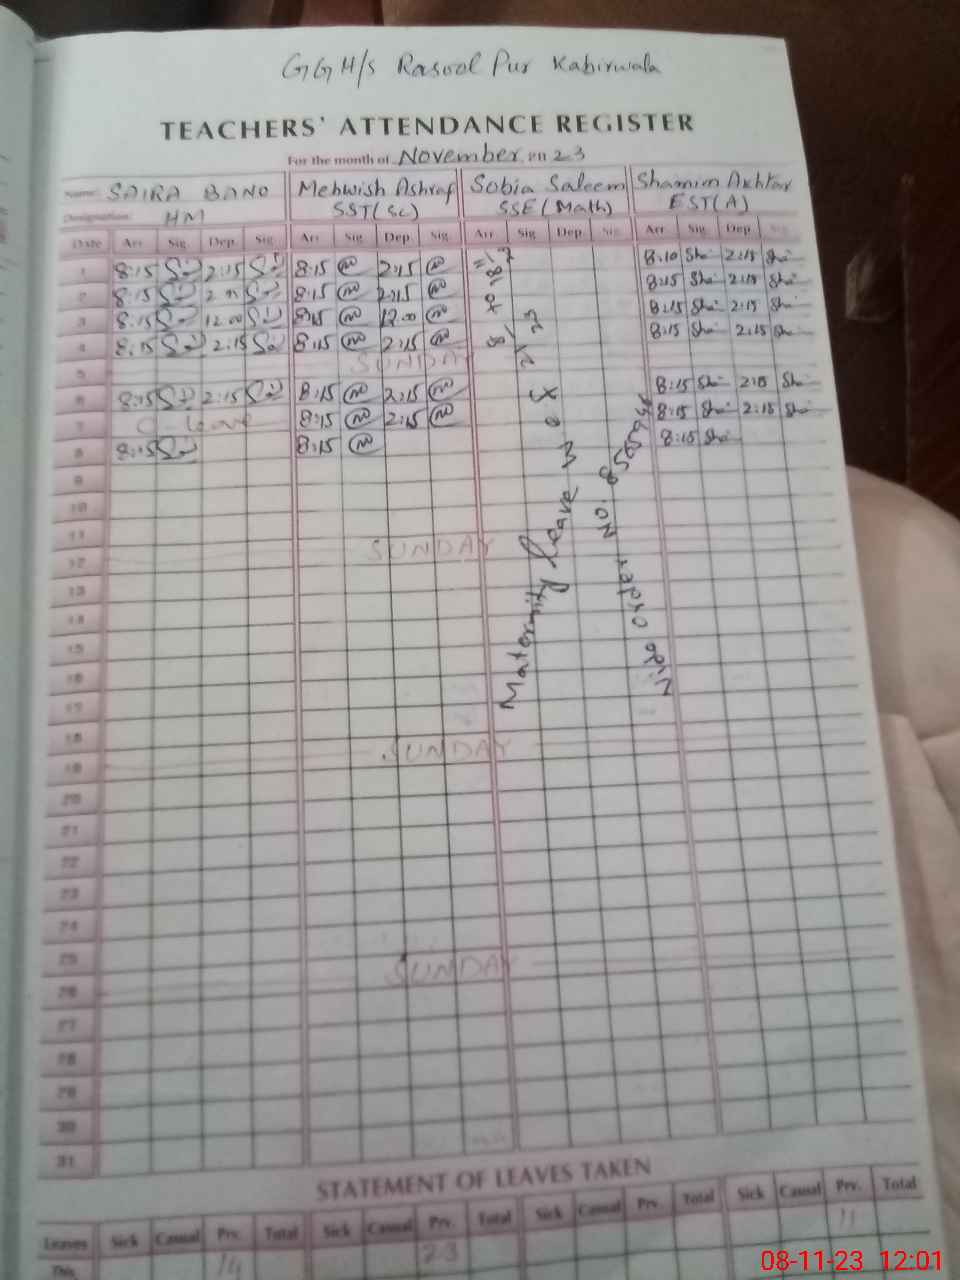 GGH/S Rasool Pur Kabirwala
TEACHERS' ATTENDANCE REGISTER
For the month of November, 23
Name: SAIRA BANO Mehwish Ashraf Sobia Saleem Shamim Akhtar
Designation: HM SST(Sc) SSE (Math) EST(A)
Date Arr. Sig. Dep. Sig. Arr. Sig. Dep. Sig. Arr. Sig. Dep. Sig. Arr. Sig. Dep. Sig.
1 8:15 2:15 8:15 2:15 8:10 Sha 2:15 Sha
2 8:15 8:15 2:15 8:15 Sha 2:15 Sha
3 8:15 12.00 8:15 12.00 8:15 Sha 2:15 Sha
4 8:15 2:15 8:15 2:15 8:15 Sha 2:15 Sha
5 SUNDAY
6 8:15 2:15 8:15 2:15 8:15 Sha 2:15 Sha
7 C-leave 8:15 2:15 8:15 Sha 2:15 Sha
8 8:15 8:15 8:15 Sha
Maternity leave
Vide order No.
9
10
11
12 SUNDAY
13
14
15
16
17
18
19 SUNDAY
20
21
22
23
24
25
26 SUNDAY
27
28
29
30
31
STATEMENT OF LEAVES TAKEN
Leaves Sick Casual Prv. Total Sick Casual Prv. Total Sick Casual Prv. Total Sick Casual Prv. Total
This 14 23 11
08-11-23 12:01